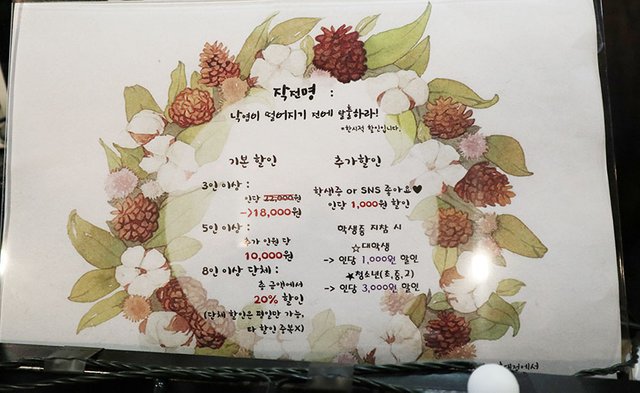 작전명 :
낙엽이 떨어지기 전에 탈출하라!
*한시적 할인입니다.
기본 할인
3인 이상 :
인당 22,000원
->18,000원
5인 이상 :
추가 인원 당
10,000원
8인 이상 단체 :
총 금액에서
20% 할인
(단체 할인은 평일만 가능,
타 할인 중복X)
추가할인
학생증 or SNS 좋아요♥
인당 1,000원 할인
학생증 지참 시
☆대학생
-> 인당 1,000원 할인
★청소년(초,중,고)
-> 인당 3,000원 할인